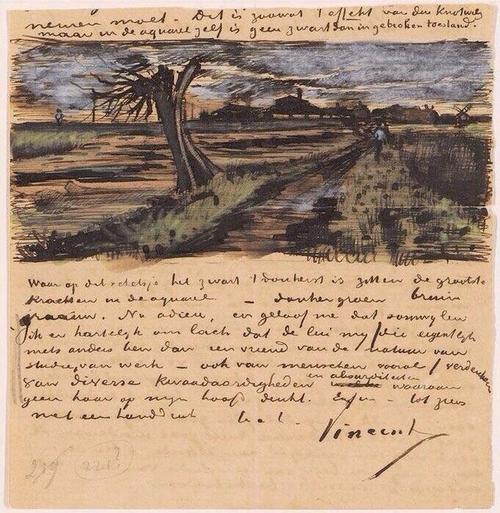 nemen moet. Dit is zoowat 't effect van den Knotwilg
maar in de aquarel zelf is geen zwart dan in gebroken toestand.
Waar op dit schetsje het zwart 't donkerst is zitten de grootste
krachten in de aquarel – donkergroen bruin
graauw. Nu adieu, en geloof me dat somwijlen
ik er hartelijk om lach dat de lui mij die eigentlijk
niets anders ben dan een vriend van de natuur van
studie, van werk – ook van menschen vooral, verdenken
van diverse kwaadaardigheden en absurditeiten waaraan
geen haar op mijn hoofd denkt. Enfin – tot ziens
met een handdruk t. à t.
Vincent